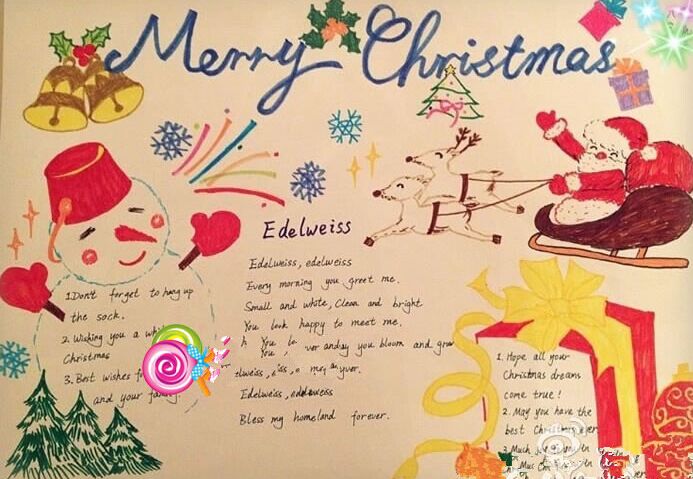 Merry Christmas
Edelweiss
Edelweiss, edelweiss
Every morning you greet me.
Small and white, Clean and bright
You look happy to meet me.
You bloom and grow
Edelweiss, edelweiss
Bless my homeland forever.
1. Don't forget to hang up
the sock.
2. Wishing you a
Christmas
3. Best wishes
and your
1. Hope all your
Christmas dreams
come true!
2. May you have the
best Christmas ever
3. Much joy